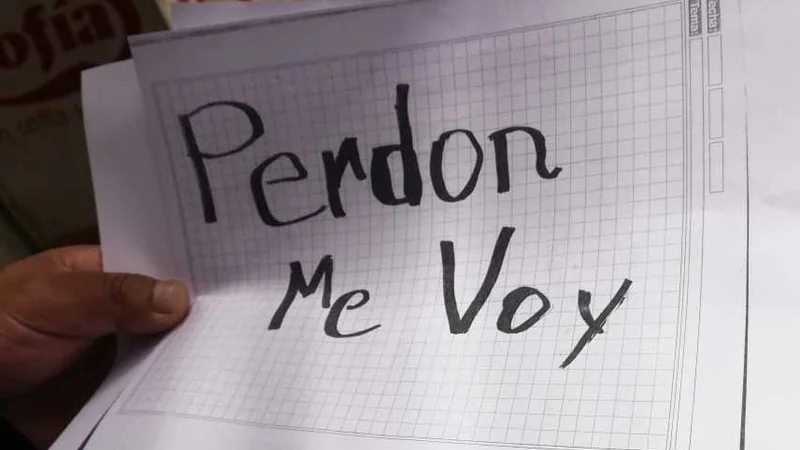 ofía
Fecha:
Tema:
Perdon
Me Voy